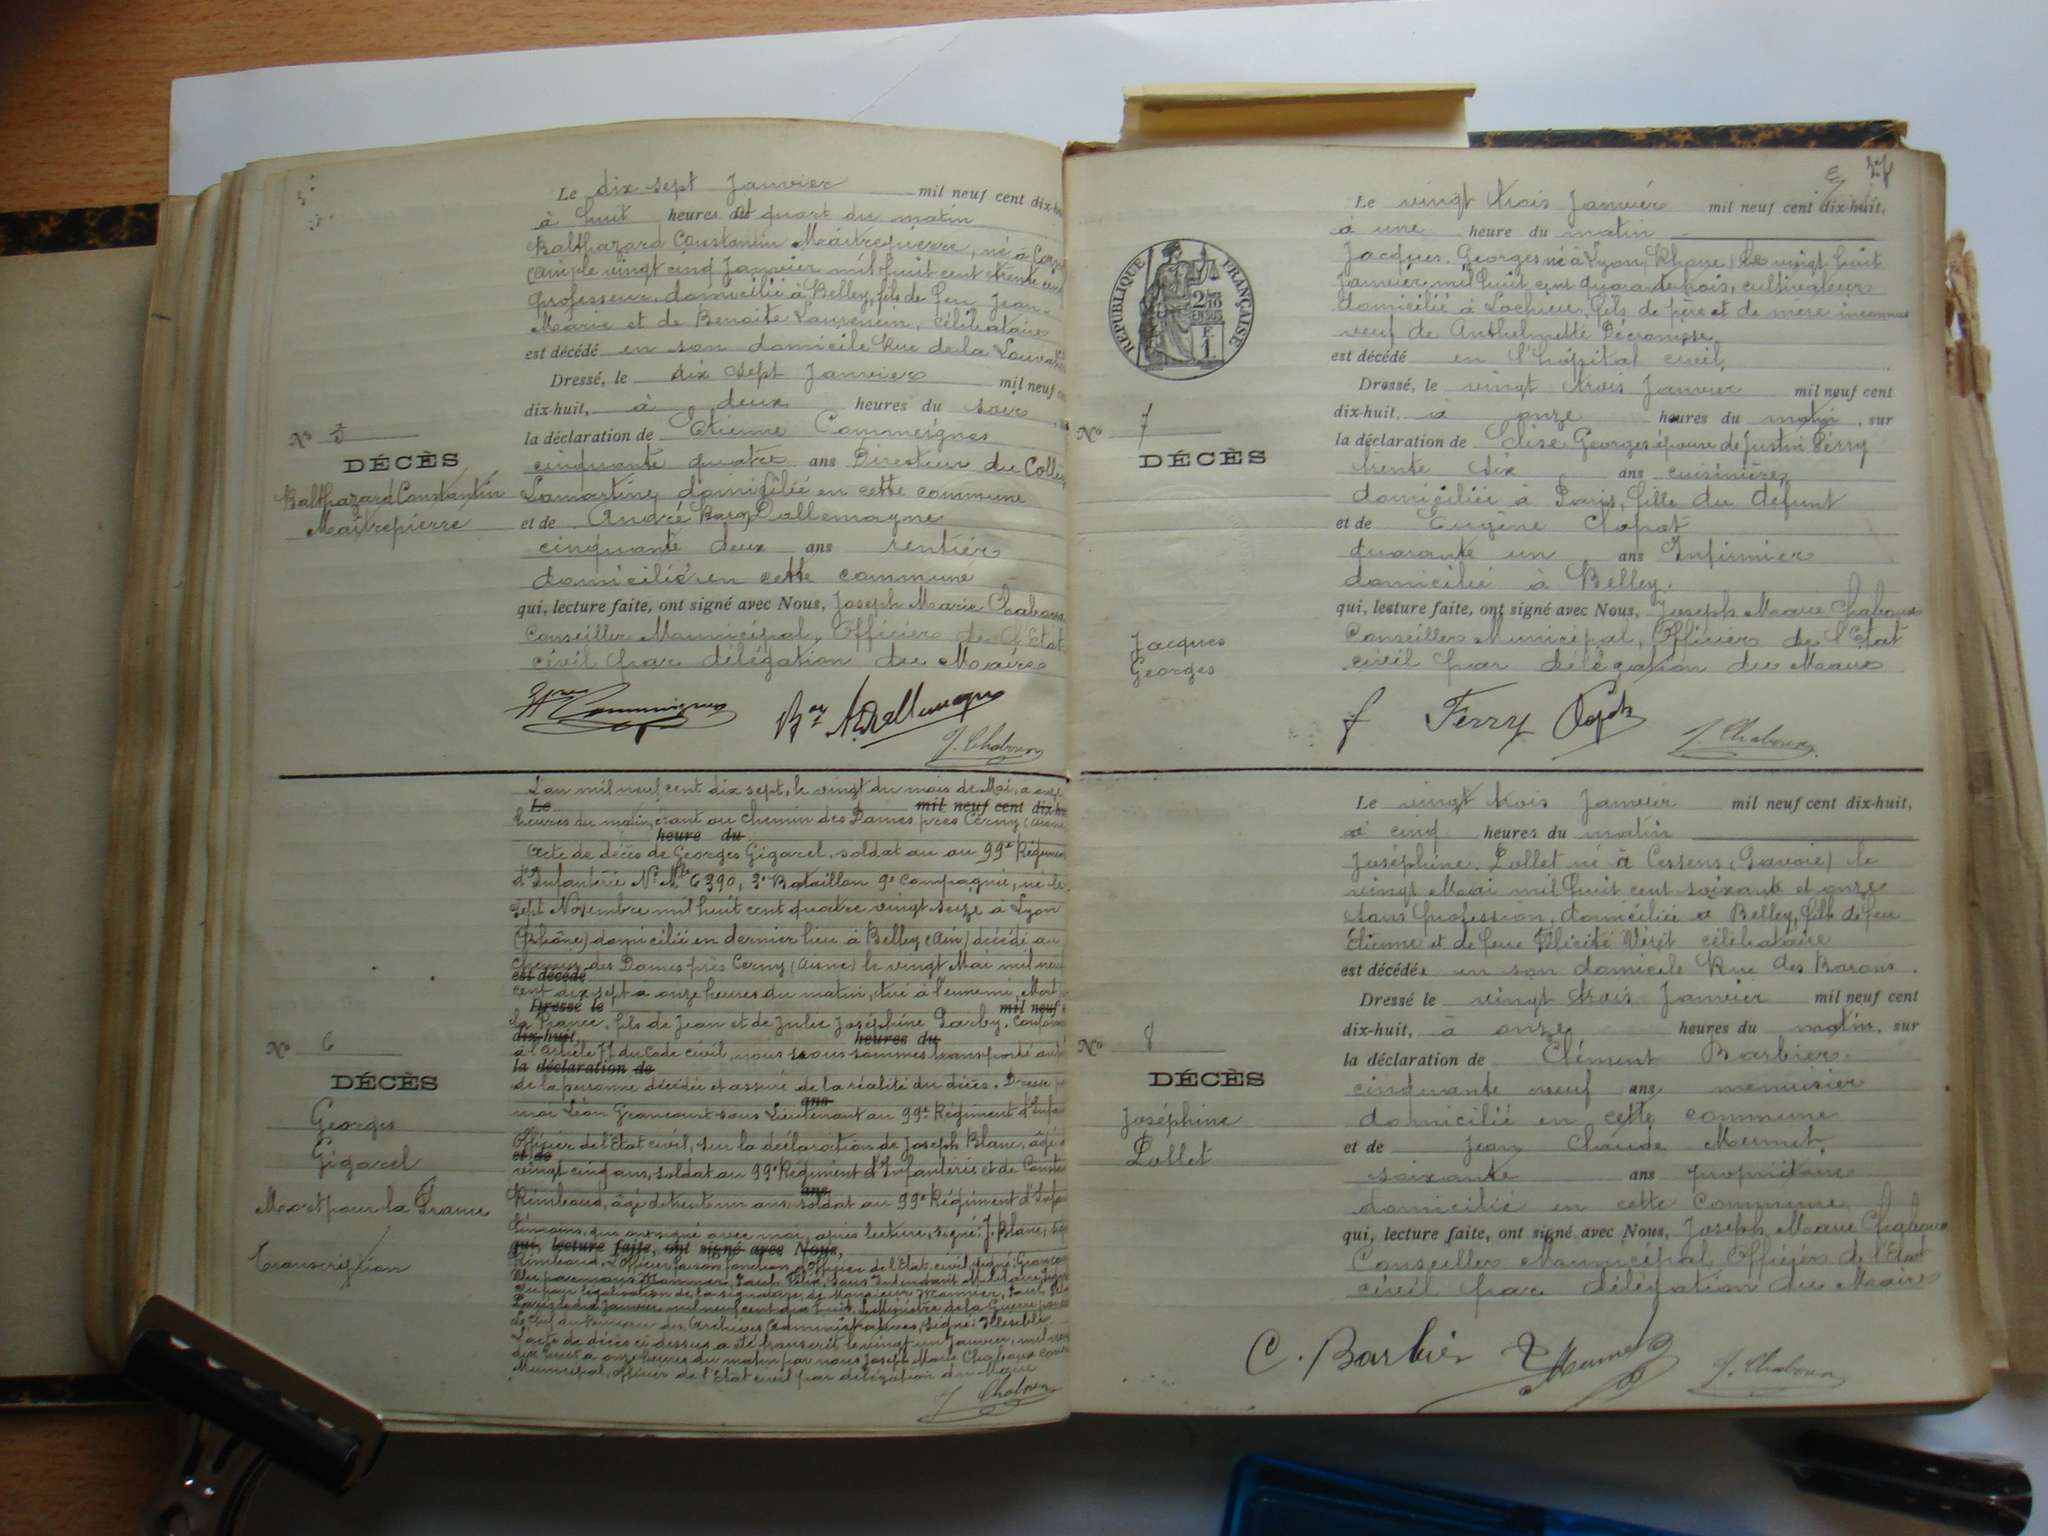 Le dix sept Janvier mil neuf cent dix-hu
à huit heures et quart du matin
Balthazard Constantin Maitrepierre, né à
(Ain) le vingt cinq Janvier mil huit cent trente
professeur, domicilié à Belley, fils de feu Jean-
Marie et de Benoite Laurencin, célibataire
est décédé en son domicile Rue de la
Dressé, le dix sept Janvier mil neuf
dix-huit, à deux heures du soir
la déclaration de Etienne Commeignes
cinquante quatre ans Directeur du Collè
Lamartine domicilié en cette commune
et de André Baron Dallemagne
cinquante deux ans rentier
domicilié en cette commune
qui, lecture faite, ont signé avec Nous, Joseph Marie Chaboux
Conseiller Municipal, Officier de l'Etat
civil par délégation du Maire
Nº 5
DÉCÈS
Balthazard Constantin
Maitrepierre
J. Chaboux
L'an mil neuf cent dix sept, le vingt du mois de Mai, à onze
Le mil neuf cent dix-hu
heures du matin, étant au chemin des Dames près Cerny (Aisne
heure du
Acte de décès de Georges Gigarel, soldat au au 99e Régimen
d'Infanterie Nº Mle 6390, 3e Bataillon 9e Compagnie, né le
sept Novembre mil huit cent quatre vingt seize à Lyon
(Rhône) domicilié en dernier lieu à Belley (Ain) décédé au
Chemin des Dames près Cerny (Aisne) le vingt Mai mil neuf
est décédé
cent dix sept à onze heures du matin, tué à l'ennemi, Mort
Dressé le mil neuf
la France, fils de Jean et de Julie Joséphine
dix-huit, heures du
à l'article 77 du Code civil, nous nous sommes transporté
la déclaration de
de la personne décédée et assuré de la réalité du décès. Dressé
ans
moi Léon Grancourt sous Lieutenant au 99e Régiment d'Infan
Officier de l'Etat civil, sur la déclaration de Joseph Blanc, âgé
et de
vingt cinq ans, soldat au 99e Régiment d'Infanterie et de
ans
Rimbaud, âgé de trente un ans, soldat au 99e Régiment d'Infan
témoins, qui ont signé avec moi, après lecture, signé: J. Blanc,
qui, lecture faite, ont signé avec Nous,
Rimbaud, L'Officier faisant fonction d'Officier de l'Etat civil, signé:
Vu par nous Monnier, Paul Félix, Sous Intendant Militaire
Vu pour légalisation de la signature de Monsieur Monnier, Paul
Paris le dix Janvier mil neuf cent dix huit. Le Ministre de la Guerre
le Chef du Bureau des Archives Administratives, signé: Illesible
L'acte de décès ci dessus a été transcrit le vingt un Janvier, mil
dix huit à onze heures du matin par nous Joseph Marie Chaboux
Municipal, Officier de l'Etat civil par délégation du Maire
Nº 6
DÉCÈS
Georges
Gigarel
Mort pour la France
Transcription
J. Chaboux
Le vingt trois Janvier mil neuf cent dix-huit,
à une heure du matin
Jacques. Georges né à Lyon, Rhône) le vingt huit
Janvier mil huit cent quarante trois, cultivateur
domicilié à Lochieu, fils de père et de mère inconnus
veuf de Anthelmette
est décédé en l'hôpital civil
Dressé, le vingt trois Janvier mil neuf cent
dix-huit, à onze heures du matin, sur
la déclaration de Elise Georges épouse de Justin Ferry
trente dix ans cuisinière
domiciliée à Paris, fille du défunt
et de Eugène Chapot
quarante un ans Infirmier
domicilié à Belley.
qui, lecture faite, ont signé avec Nous, Joseph Marie Chaboux
Conseiller Municipal, Officier de l'Etat
civil par délégation du Maire
RÉPUBLIQUE FRANÇAISE
2/10 EN SUS
F. 1
Nº 7
DÉCÈS
Jacques
Georges
f Ferry
J. Chaboux
Le vingt trois Janvier mil neuf cent dix-huit,
à cinq heures du matin
Joséphine. Lollet né à Cessens (Savoie) le
vingt Mai mil huit cent soixante et onze
sans profession, domiciliée à Belley, fille de feu
Etienne et de feue Félicité célibataire
est décédée en son domicile Rue des Barons.
Dressé le vingt trois Janvier mil neuf cent
dix-huit, à onze heures du matin, sur
la déclaration de Clément Barbier.
cinquante neuf ans menuisier
domicilié en cette commune
et de Jean Claude Mermet,
soixante ans propriétaire
domicilié en cette Commune
qui, lecture faite, ont signé avec Nous, Joseph Marie Chaboux
Conseiller Municipal Officier de l'Etat
civil par délégation du Maire
Nº 8
DÉCÈS
Joséphine
Lollet
C. Barbier Mermet
J. Chaboux